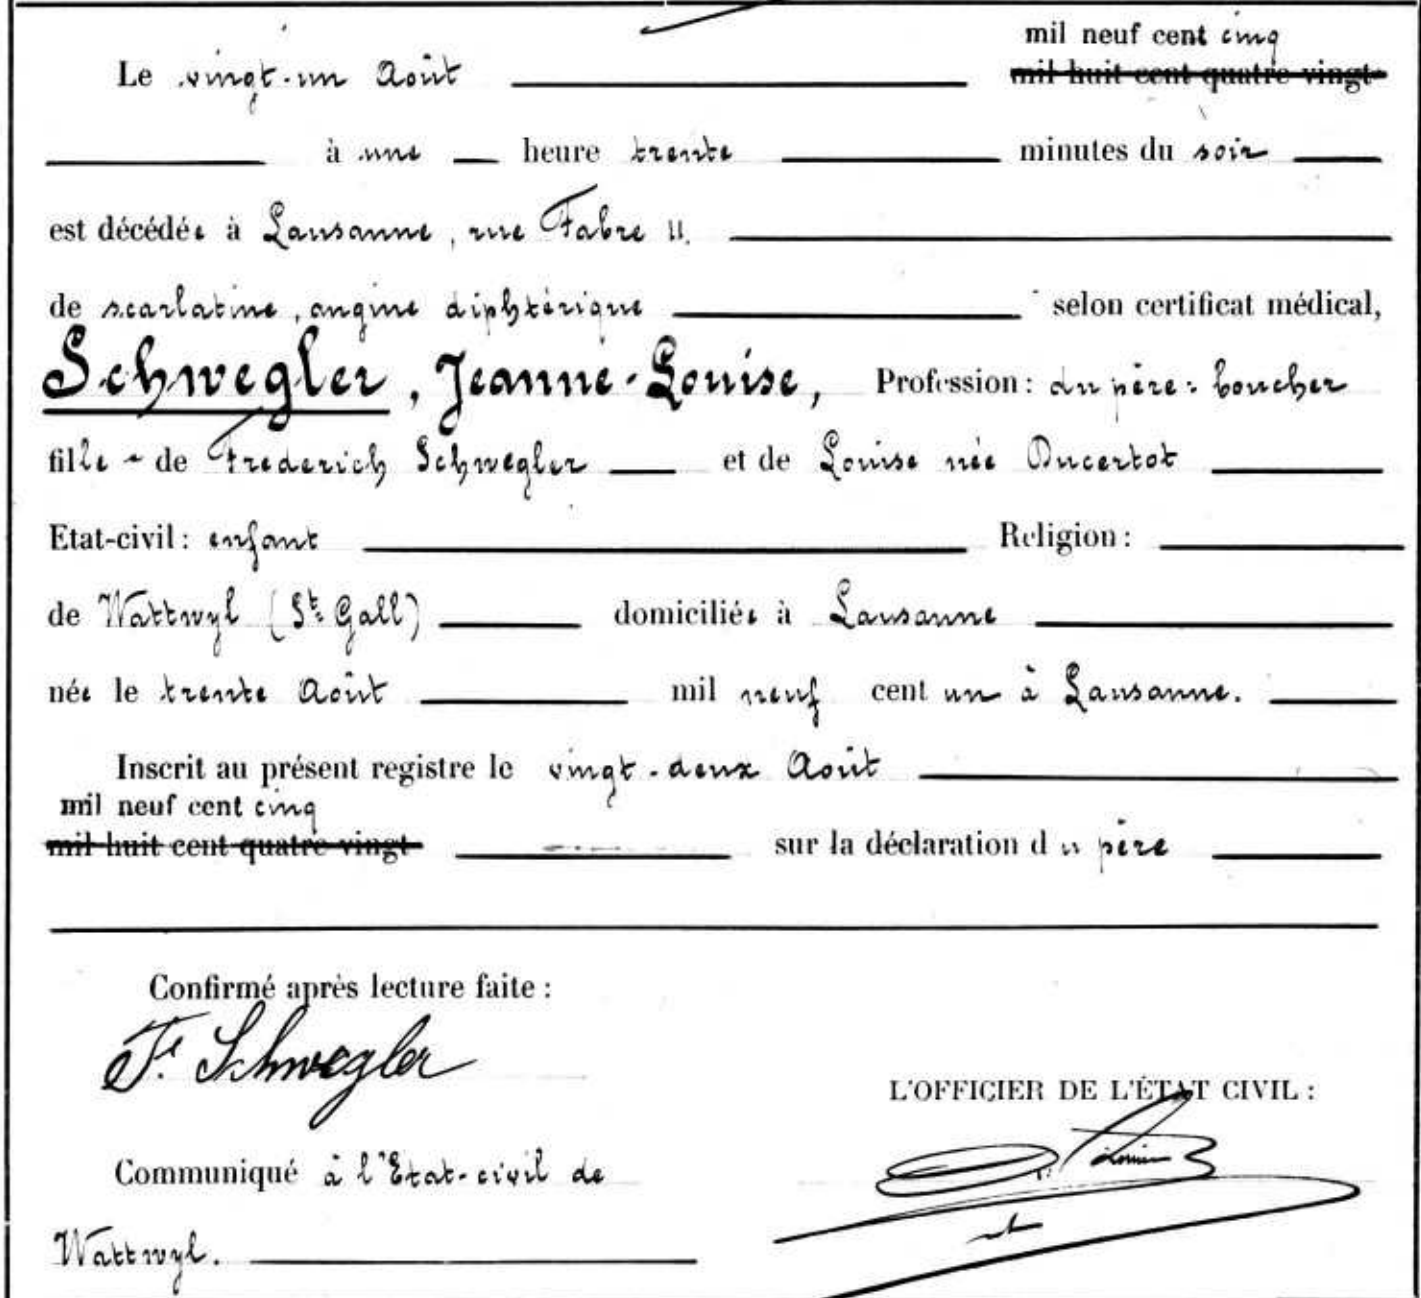 mil neuf cent cinq
Le vingt-un Août mil huit cent quatre vingt
à une heure trente minutes du soir
est décédée à Lausanne, rue Fabre 11.
de scarlatine, angine diphtérique selon certificat médical,
Schwegler, Jeanne-Louise, Profession: du père: boucher
fille de Frederich Schwegler et de Louise née Ducertot
Etat-civil: enfant Religion:
de Wattwyl (St. Gall) domiciliée à Lausanne
née le trente Août mil neuf cent un à Lausanne.
Inscrit au présent registre le vingt-deux Août
mil neuf cent cinq
mil huit cent quatre vingt sur la déclaration du père
Confirmé après lecture faite:
Fr. Schwegler
L'OFFICIER DE L'ÉTAT CIVIL:
Communiqué à l'Etat-civil de
Wattwyl.